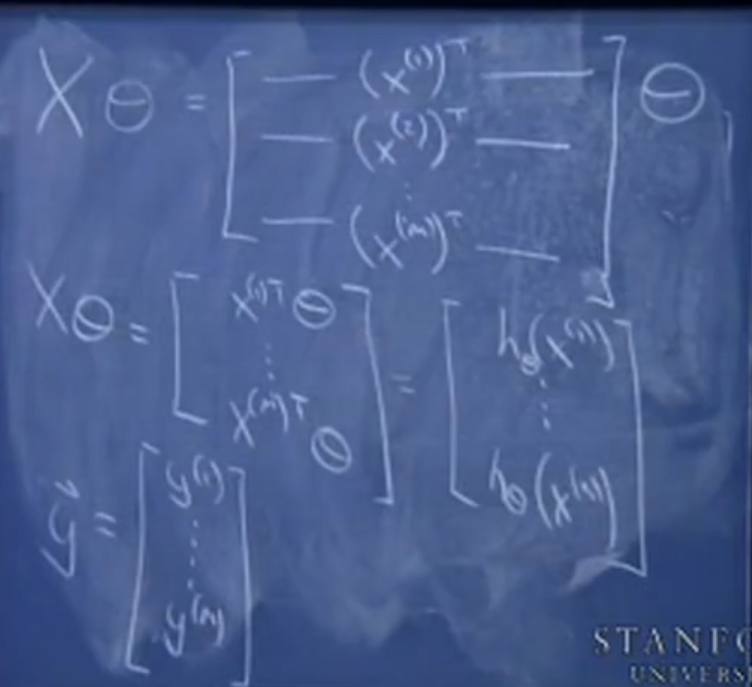 X θ = [ — (x⁽¹⁾)ᵀ — — (x⁽²⁾)ᵀ — ⋮ — (x⁽ᵐ⁾)ᵀ — ] θ
Xθ = [ x⁽¹⁾ᵀ θ ⋮ x⁽ᵐ⁾ᵀ θ ] = [ h_θ(x⁽¹⁾) ⋮ h_θ(x⁽ᵐ⁾) ]
y⃗ = [ y⁽¹⁾ ⋮ y⁽ᵐ⁾ ]
STANFO
UNIVERS